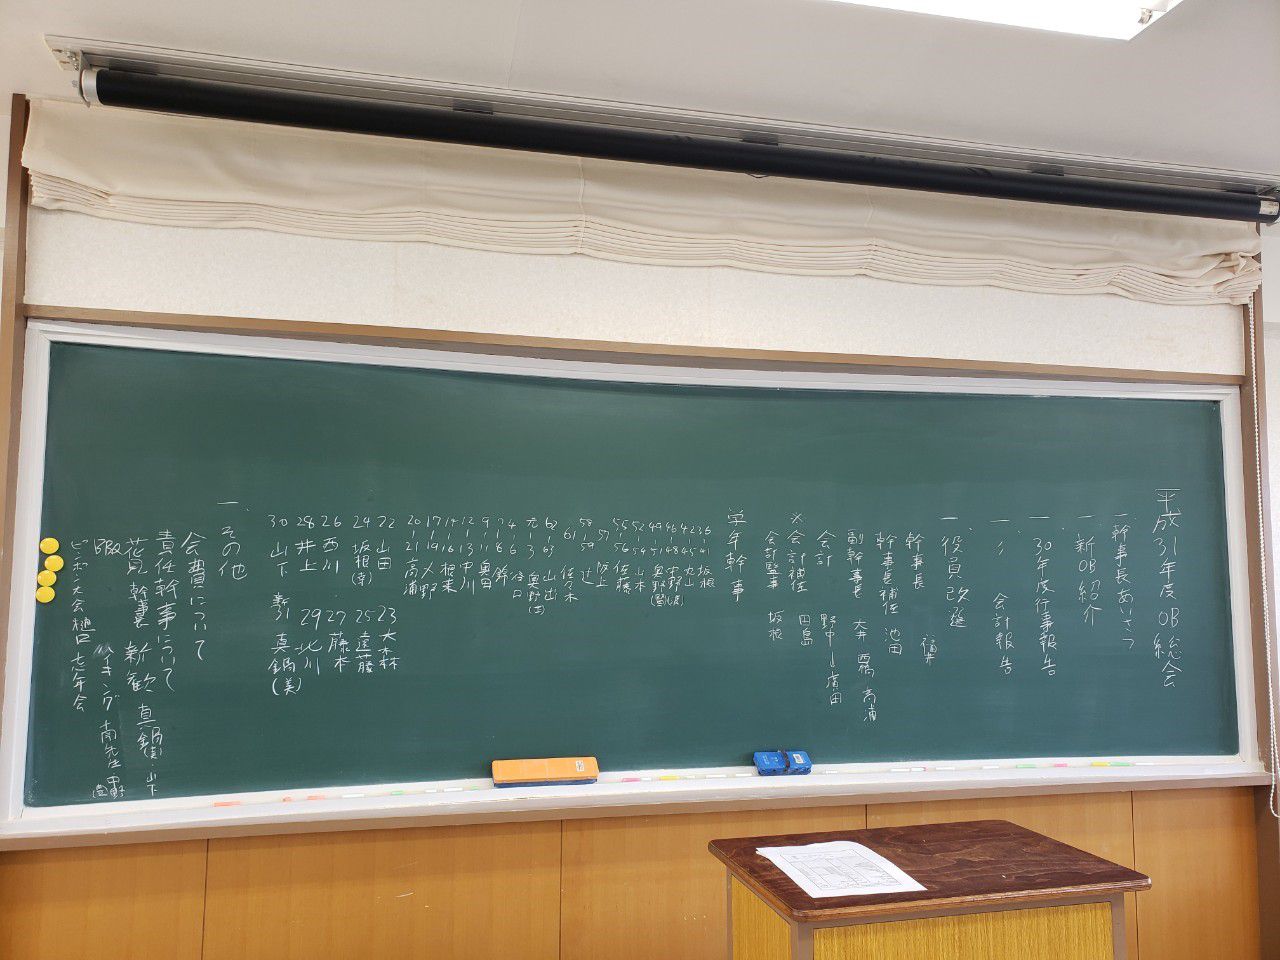 平成31年度OB総会
一、幹事長あいさつ
一、新OB紹介
一、30年度行事報告
一、〃 会計報告
一、役員改選
幹事長 福井
幹事長補佐 池田
副幹事長 大井 西橋 高浦
会計 野中 濱田
※会計補佐 田島
会計監事 坂根
学年幹事
36 41 坂根
42 45 丸山
46 48 中野
49 51 奥野(賢)
52 54 山本
55 56 佐藤
57 阪上
58 59 辻
61 佐々木
62 63 山出
元 3 奥野(吉)
4 6 谷口
7 8
9 11 奥田
12 13 中川
14 16 根来
17 19 大野
20 21 高浦
22 山田 23 大木林
24 坂根(幸) 25 遠藤
26 西川 27 藤本
28 井上 29 北川
30 山下 真鍋(美)
一、その他
会費について
責任幹事について
花見 新歓 真鍋 山下
BBQ ハイキング 南先生 中野
ピンポン大会 樋口 忘年会